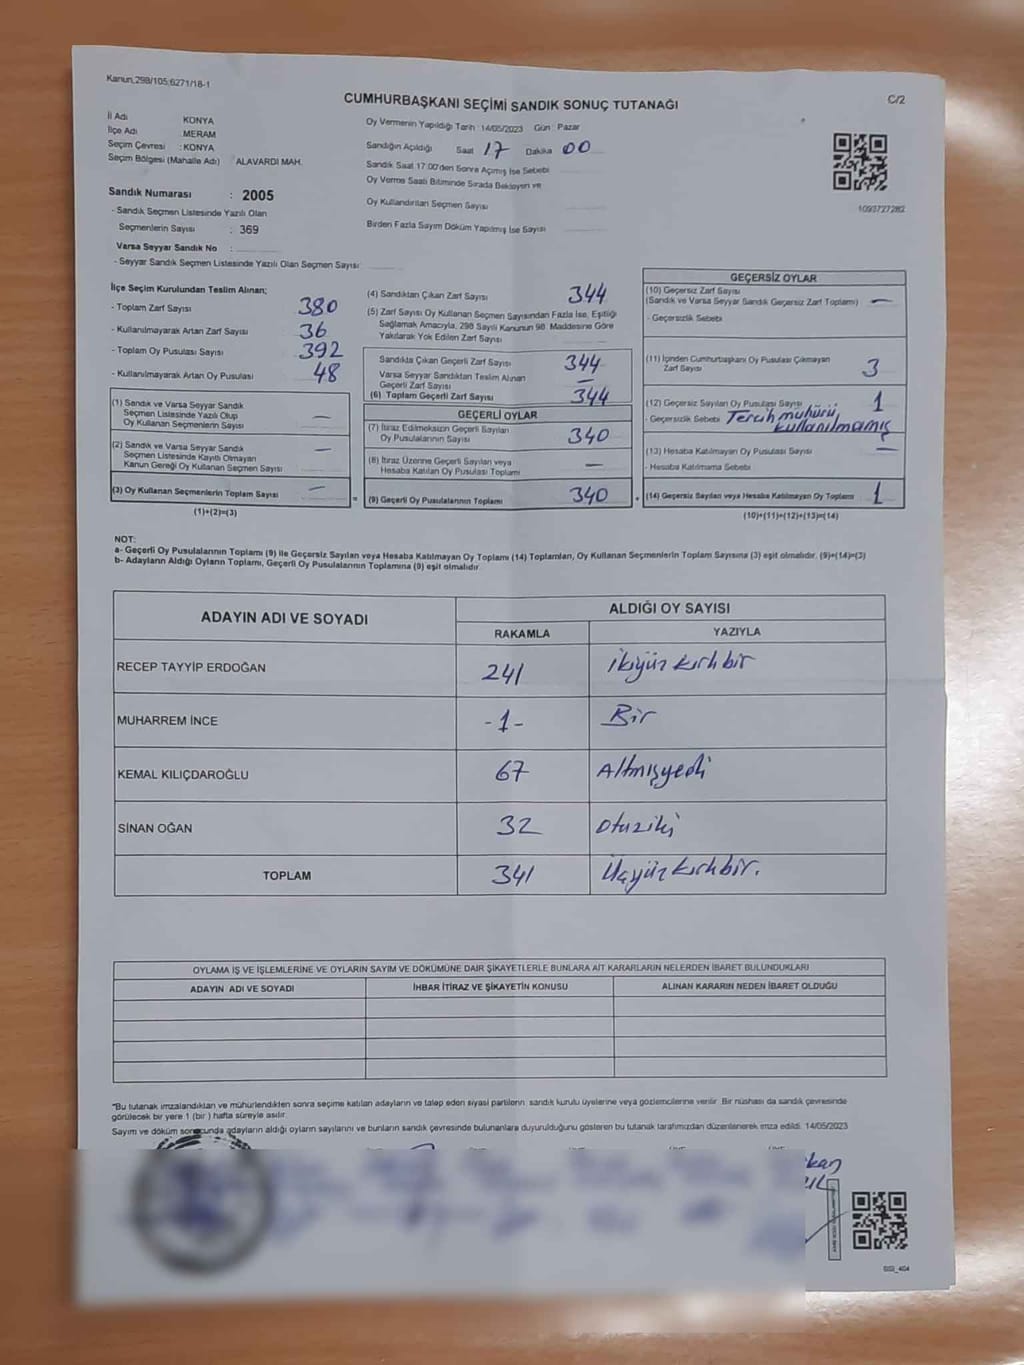 Kanun,298/105;6271/18-1
C/2
CUMHURBAŞKANI SEÇİMİ SANDIK SONUÇ TUTANAĞI
İl Adı KONYA
İlçe Adı MERAM
Seçim Çevresi : KONYA
Seçim Bölgesi (Mahalle Adı) : ALAVARDI MAH.
Oy Vermenin Yapıldığı Tarih : 14/05/2023 Gün : Pazar
Sandığın Açıldığı Saat 17 Dakika 00
Sandık Saat 17:00'den Sonra Açımış İse Sebebi
Oy Verme Saati Bitiminde Sırada Bekleyen ve
Oy Kullandırılan Seçmen Sayısı
Birden Fazla Sayım Döküm Yapılmış İse Sayısı
1093727282
Sandık Numarası : 2005
- Sandık Seçmen Listesinde Yazılı Olan
Seçmenlerin Sayısı : 369
Varsa Seyyar Sandık No :
- Seyyar Sandık Seçmen Listesinde Yazılı Olan Seçmen Sayısı:
İlçe Seçim Kurulundan Teslim Alınan;
- Toplam Zarf Sayısı 380
- Kullanılmayarak Artan Zarf Sayısı 36
- Toplam Oy Pusulası Sayısı 392
- Kullanılmayarak Artan Oy Pusulası 48
(1) Sandık ve Varsa Seyyar Sandık
Seçmen Listesinde Yazılı Olup
Oy Kullanan Seçmenlerin Sayısı —
(2) Sandık ve Varsa Seyyar Sandık
Seçmen Listesinde Kayıtlı Olmayan
Kanun Gereği Oy Kullanan Seçmen Sayısı —
(3) Oy Kullanan Seçmenlerin Toplam Sayısı —
(1)+(2)=(3)
(4) Sandıktan Çıkan Zarf Sayısı 344
(5) Zarf Sayısı Oy Kullanan Seçmen Sayısından Fazla İse, Eşitliği
Sağlamak Amacıyla, 298 Sayılı Kanunun 98. Maddesine Göre
Yakılarak Yok Edilen Zarf Sayısı
Sandıkta Çıkan Geçerli Zarf Sayısı 344
Varsa Seyyar Sandıktan Teslim Alınan
Geçerli Zarf Sayısı —
(6) Toplam Geçerli Zarf Sayısı 344
GEÇERLİ OYLAR
(7) İtiraz Edilmeksizin Geçerli Sayılan
Oy Pusulalarının Sayısı 340
(8) İtiraz Üzerine Geçerli Sayılan veya
Hesaba Katılan Oy Pusulası Toplamı —
= (9) Geçerli Oy Pusulalarının Toplamı 340
GEÇERSİZ OYLAR
(10) Geçersiz Zarf Sayısı
(Sandık ve Varsa Seyyar Sandık Geçersiz Zarf Toplamı) —
- Geçersizlik Sebebi
(11) İçinden Cumhurbaşkanı Oy Pusulası Çıkmayan
Zarf Sayısı 3
(12) Geçersiz Sayılan Oy Pusulası Sayısı 1
- Geçersizlik Sebebi Tercih mühürü,
kullanılmamış
(13) Hesaba Katılmayan Oy Pusulası Sayısı —
- Hesaba Katılmama Sebebi
+ (14) Geçersiz Sayılan veya Hesaba Katılmayan Oy Toplamı 1
(10)+(11)+(12)+(13)=(14)
NOT:
a- Geçerli Oy Pusulalarının Toplamı (9) ile Geçersiz Sayılan veya Hesaba Katılmayan Oy Toplamı (14) Toplamları, Oy Kullanan Seçmenlerin Toplam Sayısına (3) eşit olmalıdır. (9)+(14)=(3)
b- Adayların Aldığı Oyların Toplamı, Geçerli Oy Pusulalarının Toplamına (9) eşit olmalıdır.
ADAYIN ADI VE SOYADI ALDIĞI OY SAYISI
RAKAMLA YAZIYLA
RECEP TAYYİP ERDOĞAN 241 ikiyüz kırkbir
MUHARREM İNCE -1- Bir
KEMAL KILIÇDAROĞLU 67 Altmışyedi
SİNAN OĞAN 32 otuziki
TOPLAM 341 Üçyüz kırkbir.
OYLAMA İŞ VE İŞLEMLERİNE VE OYLARIN SAYIM VE DÖKÜMÜNE DAİR ŞİKAYETLERLE BUNLARA AİT KARARLARIN NELERDEN İBARET BULUNDUKLARI
ADAYIN ADI VE SOYADI İHBAR İTİRAZ VE ŞİKAYETİN KONUSU ALINAN KARARIN NEDEN İBARET OLDUĞU
*Bu tutanak imzalandıktan ve mühürlendikten sonra seçime katılan adayların ve talep eden siyasi partilerin; sandık kurulu üyelerine veya gözlemcilerine verilir. Bir nüshası da sandık çevresinde
görülecek bir yere 1 (bir ) hafta süreyle asılır.
Sayım ve döküm sonucunda adayların aldığı oyların sayılarını ve bunların sandık çevresinde bulunanlara duyurulduğunu gösteren bu tutanak tarafımızdan düzenlenerek imza edildi. 14/05/2023